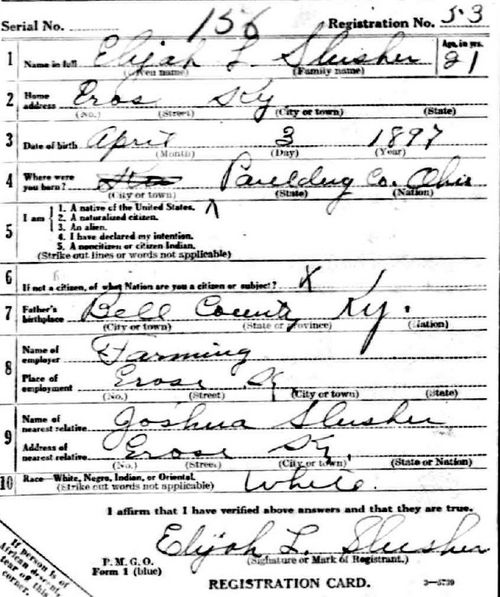 Serial No. 156 Registration No. 53
1 Name in full Elijah L Slusher Age, in yrs. 21
(Given name) (Family name)
2 Home address Eros Ky
(No.) (Street) (City or town) (State)
3 Date of birth April 3 1897
(Month) (Day) (Year)
4 Where were you born? Paulding Co. Ohio
(City or town) (State) (Nation)
5 I am 1. A native of the United States. X
2. A naturalized citizen.
3. An alien.
4. I have declared my intention.
5. A noncitizen or citizen Indian.
(Strike out lines or words not applicable)
6 If not a citizen, of what Nation are you a citizen or subject? X
7 Father's birthplace Bell County Ky.
(City or town) (State or province) (Nation)
8 Name of employer Farming
Place of employment Erose K
(No.) (Street) (City or town) (State)
9 Name of nearest relative Joshua Slusher
Address of nearest relative Erose Ky.
(No.) (Street) (City or town) (State or Nation)
10 Race—White, Negro, Indian, or Oriental. White
(Strike out words not applicable)
I affirm that I have verified above answers and that they are true.
Elijah L. Slusher
P. M. G. O. (Signature or Mark of Registrant.)
Form 1 (blue) REGISTRATION CARD. 3—5739
If person is of
African descent,
tear off this
corner.